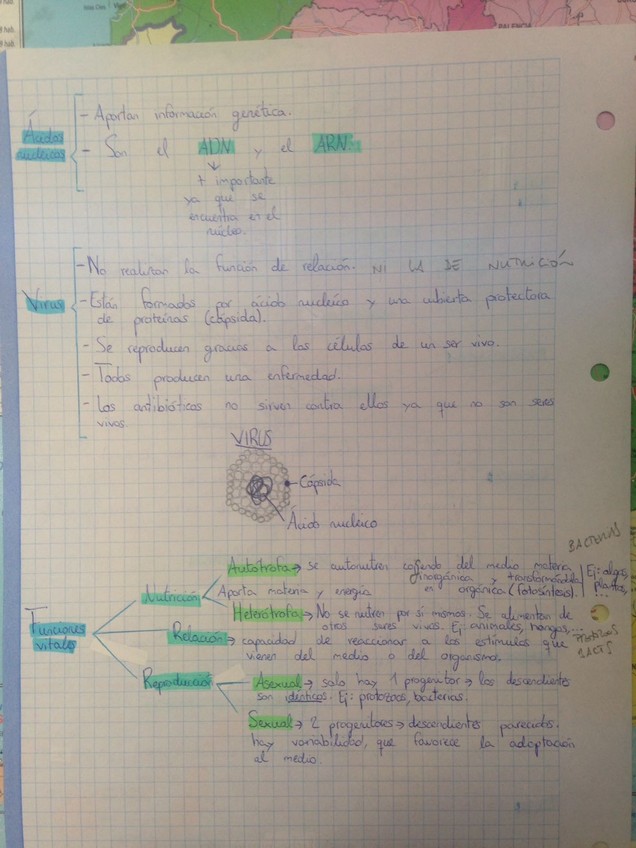 PALENCIA
Ácidos nucléicos
- Aportan información genética.
- Son el ADN y el ARN.
+ importante
ya que se
encuentra en el
núcleo.
Virus
- No realizan la función de relación. NI LA DE NUTRICIÓN
- Están formados por ácido nucléico y una cubierta protectora
de proteínas (cápsida).
- Se reproducen gracias a las células de un ser vivo.
- Todos producen una enfermedad.
- Los antibióticos no sirven contra ellos ya que no son seres
vivos.
VIRUS
Cápsida
Ácido nucléico
Funciones vitales
Nutrición
Aporta materia y energía
Autótrofa → se autonutren cogiendo del medio materia
inorgánica y transformándola
en orgánica (fotosíntesis).
Ej: algas,
plantas,
...
BACTERIAS
Heterótrofa → No se nutren por si mismos. Se alimentan de
otros seres vivos. Ej: animales, hongos,...
PROTOZOOS
BACTS
Relación → capacidad de reaccionar a los estímulos que
vienen del medio o del organismo.
Reproducción
Asexual → solo hay 1 progenitor → los descendientes
son idénticos. Ej: protozoos, bacterias.
Sexual → 2 progenitores → descendientes parecidos.
hay variabilidad, que favorece la adaptación
al medio.